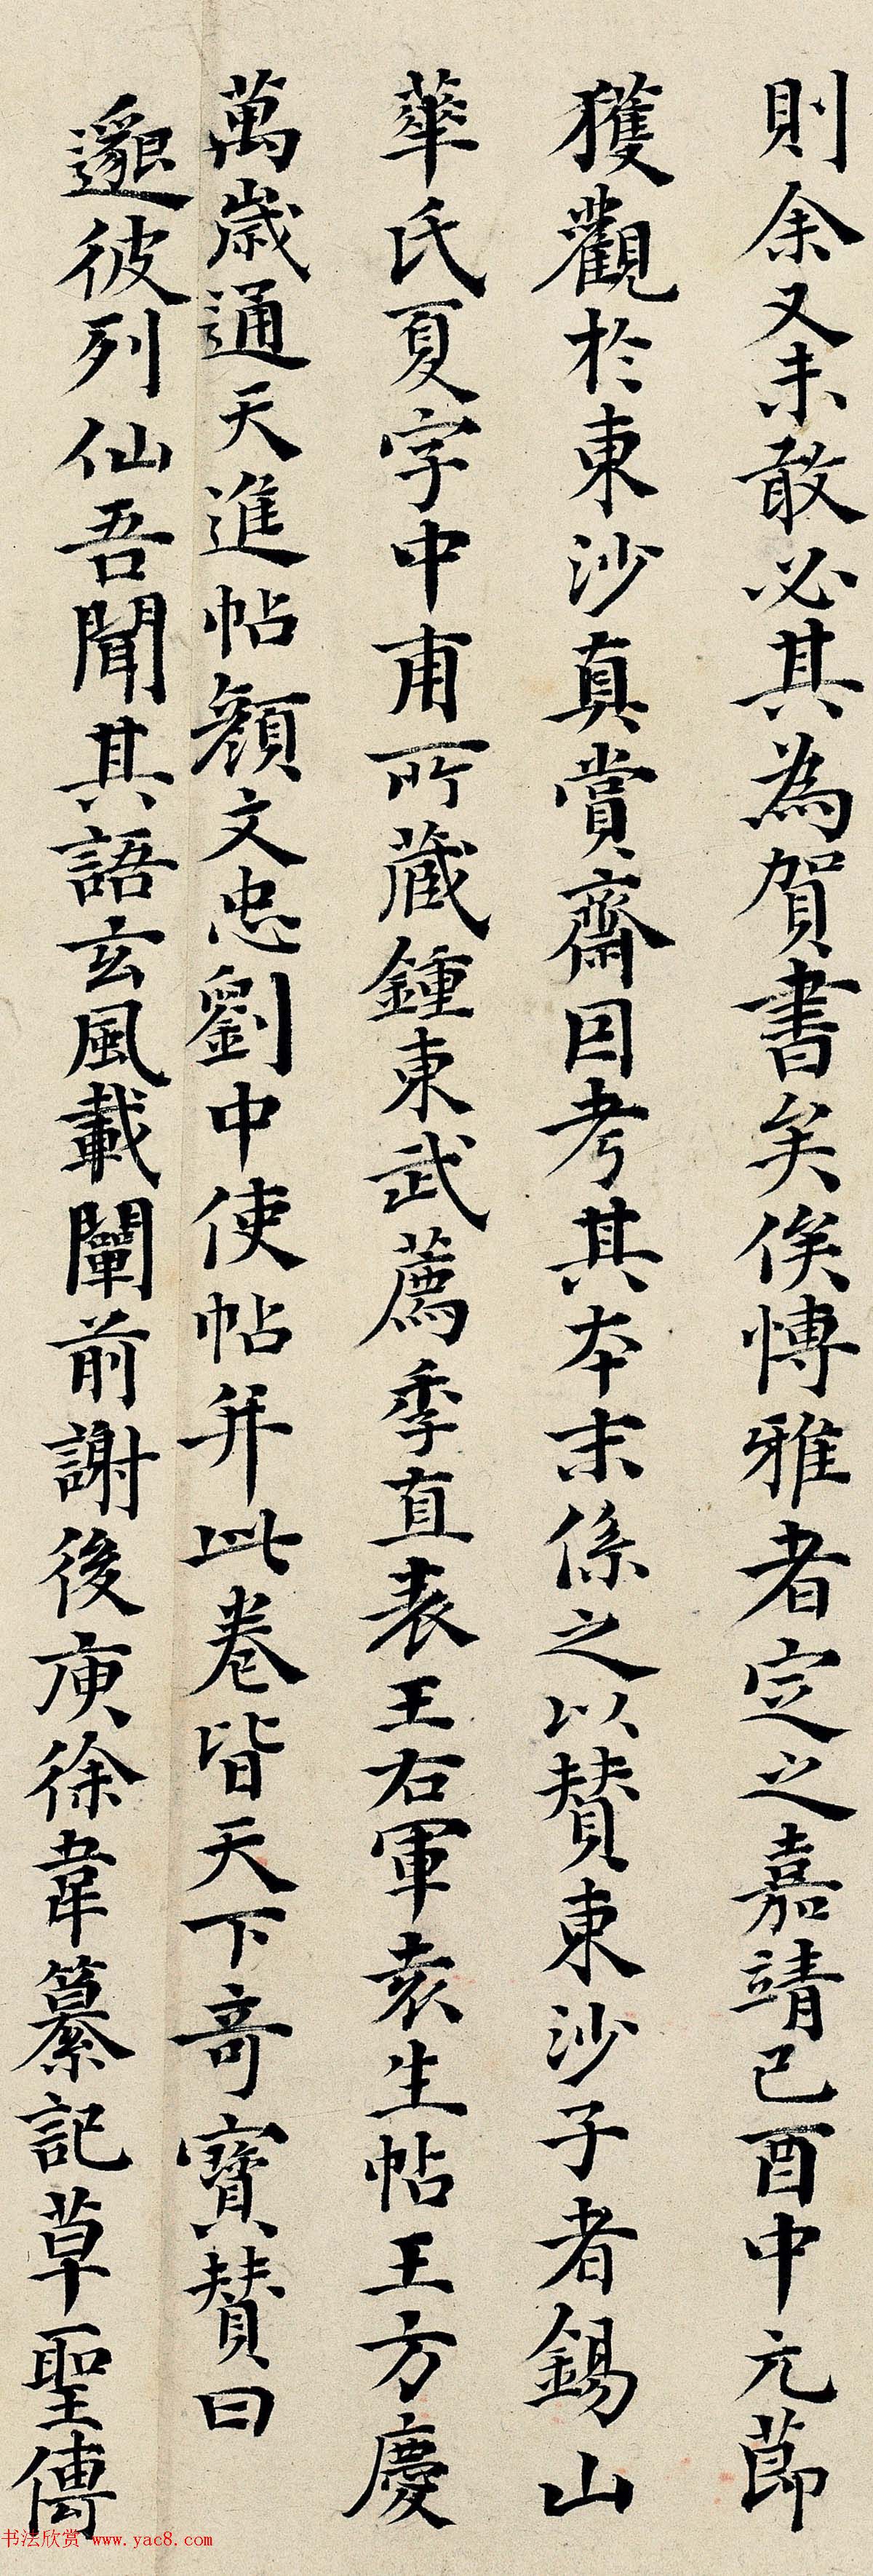 則余又未敢必其為賀書矣俟博雅者定之嘉靖己酉中元節
獲觀於東沙真賞齋因考其本末係之以賛東沙子者錫山
華氏夏字中甫所藏鍾東武薦季直表王右軍袁生帖王方慶
萬歲通天進帖顏文忠劉中使帖并此卷皆天下奇寶賛曰
邈彼列仙吾聞其語玄風載闡前謝後庾徐韋纂記草聖傳
书法欣赏 www.yac8.com